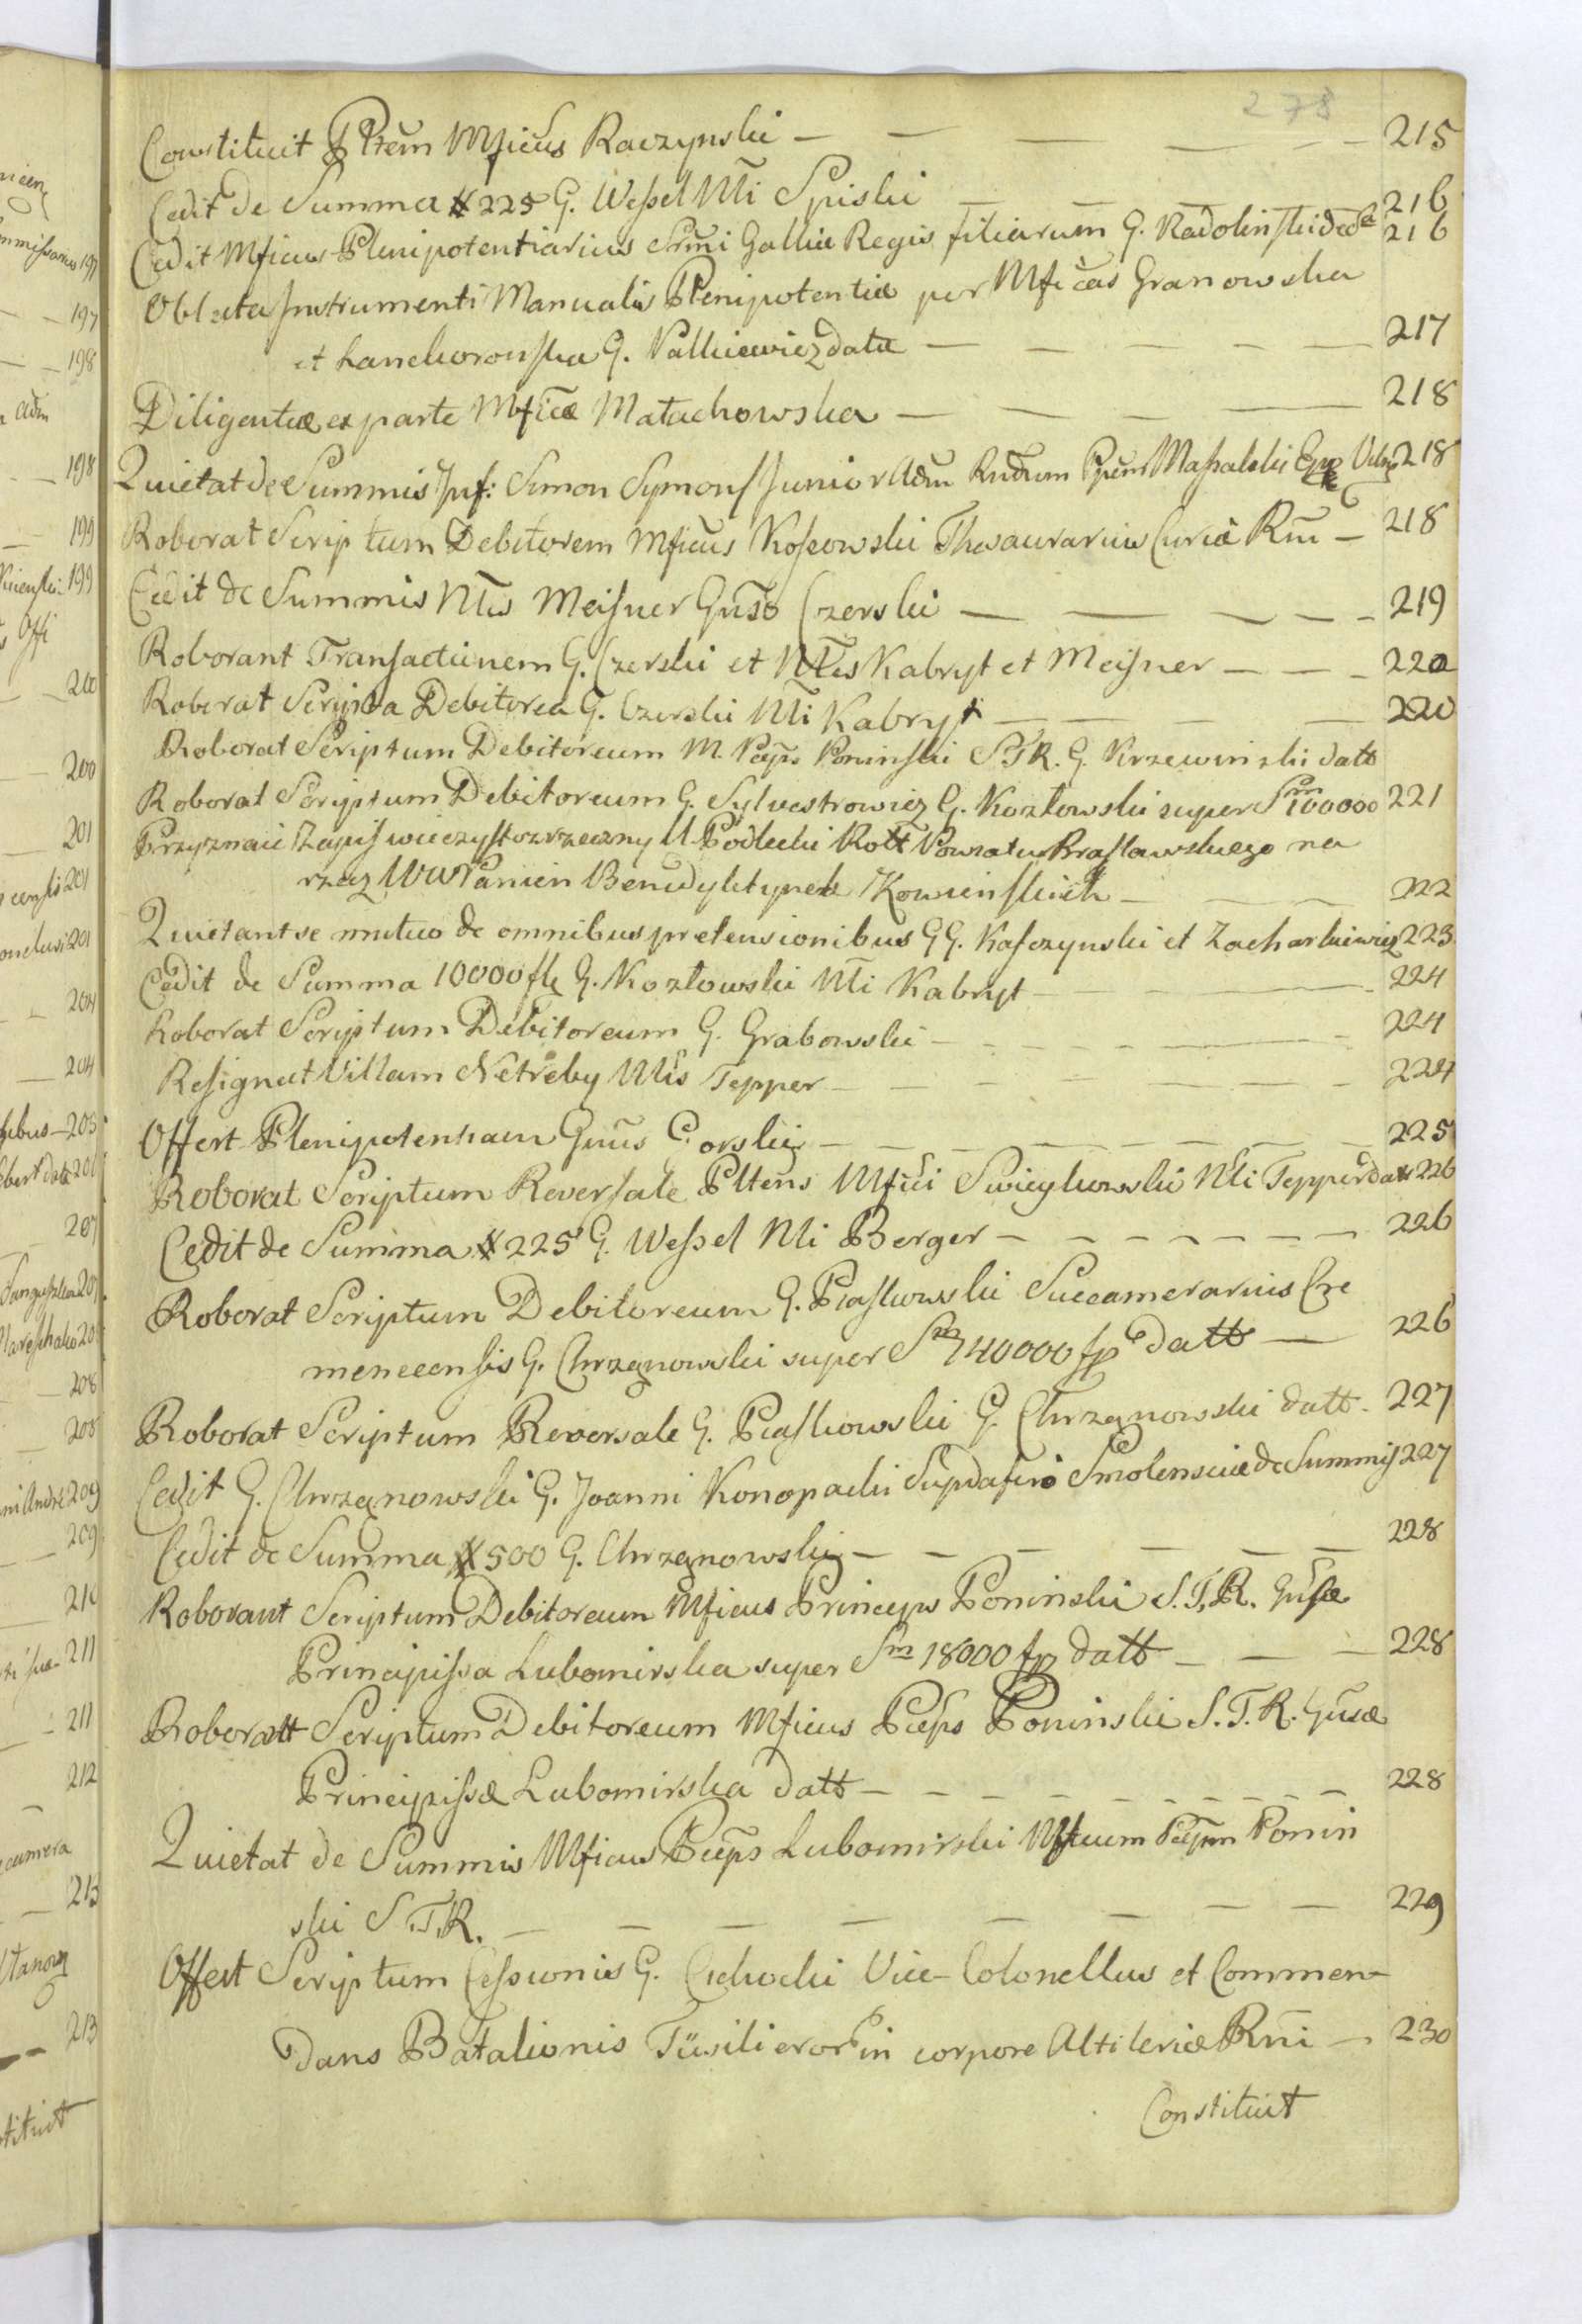 278
Constituit Pltem Mficus Raczynski — — — — — 215
Cedit de Summa # 225 G. Wessel Nli Spiski — — — 216
Cedit Mficus Plenipotentiarius Srmi Galliæ Regis filiarum G. Radolinski 216
Oblata Instrumenti Manualis Plenipotentiæ per Mficas Granowska
et Lanckoronska G. Valkiewicz datæ — — — — — 217
Diligentiæ ex parte Mficæ Małachowska — — — — 218
Quietat de Summis Inf: Simon Symons Junior Adm Rndum Ppem Massalski Epp 218
Roborat Scriptum Debitoreum Mficus Kossowski Thesaurarius Curiæ Rni — 218
Cedit de Summis Nlis Meisner Gnso Czerski — — — — — 219
Roborant Transactionem G. Czerski et Nlis Kabryt et Meisner — — — 220
Roborat Scripta Debitorea G. Czerski Nli Kabryt — — — — 220
Roborat Scriptum Debitoreum M. Pceps Poninski STR. G. Krzewinski datt
Roborat Scriptum Debitoreum G. Sylvestrowicz G. Kozłowski super Sm 100000 221
Przyznaie Zapis wieczysto zrzeczny U. Podlecki Rott Powiatu Brasławskiego na
rzecz WW Panien Benedyktynek Kowienskich — — — 222
Quietant se mutuo de omnibus pretensionibus GG. Kasczynski et Zacharkiewicz 223
Cedit de Summa 10000 fl G. Kozłowski Nli Kabryt — — — 224
Roborat Scriptum Debitoreum G. Grabowski — — — — — 224
Resignat Villam Netreby Nlis Tepper — — — — — 224
Offert Plenipotentiam Gnus Gorski — — — — — — 225
Roborat Scriptum Reversale Pltens Mfici Swieykowski Nli Tepper datt 226
Cedit de Summa # 225 G. Wessel Nli Berger — — — — — — — 226
Roborat Scriptum Debitoreum G. Piaskowski Succamerarius Cre
menecensis G. Chrzanowski super Sm 740000 fp datt — 226
Roborat Scriptum Reversale G. Piaskowski G. Chrzanowski datt - 227
Cedit G. Chrzanowski G. Joanni Konopacki Supdafero Smolensciæ de Summis 227
Cedit de Summa # 500 G. Chrzanowski — — — — — — 228
Roborant Scriptum Debitoreum Mficus Princeps Poninski S. T. R. Gnsæ
Principissa Lubomirska super Sm 18000 fp datt — — — 228
Roboratt Scriptum Debitoreum Mficus Pceps Poninski S. T. R. Gnsæ
Principissæ Lubomirska datt — — — — — — — — — 228
Quietat de Summis Mficus Pceps Lubomirski Mficum Pcpem Ponin
ski S.T.R. — — — — — — — — 229
Offert Scriptum Cessionis G. Cichocki Vice-Colonellus et Commen-
dans Batalionis Füsilieror in corpore Altileriæ Rni — 230
Constituit